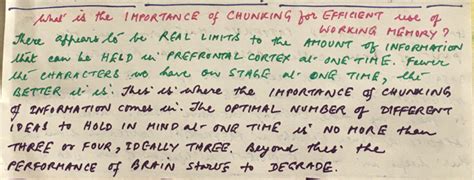 What is the IMPORTANCE of CHUNKING for EFFICIENT use of
WORKING MEMORY?
There appears to be REAL LIMITS to the AMOUNT of INFORMATION
that can be HELD in PREFRONTAL CORTEX at ONE TIME. Fewer
the CHARACTERS we have ON STAGE at ONE TIME, the
BETTER it is. This is where the IMPORTANCE of CHUNKING
of INFORMATION comes in. The OPTIMAL NUMBER of DIFFERENT
IDEAS to HOLD IN MIND at ONE TIME is NO MORE than
THREE or FOUR, IDEALLY THREE. Beyond this the
PERFORMANCE of BRAIN starts to DEGRADE.